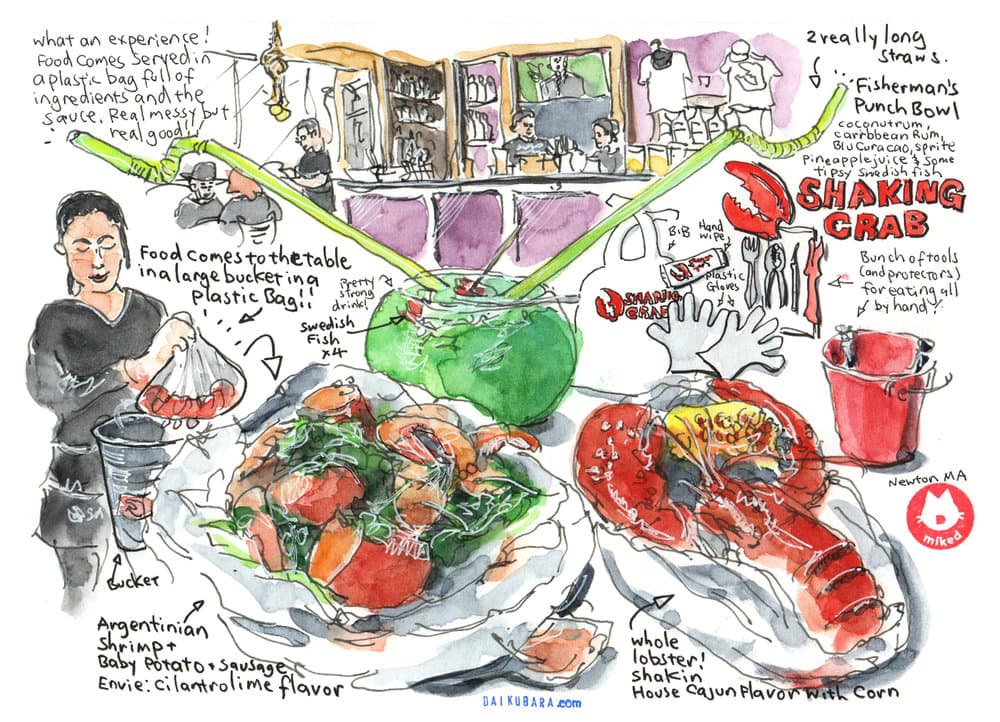 what an experience!
Food comes served in
a plastic bag full of
ingredients and the
sauce. Real messy but
real good!!
2 really long
straws.
Fisherman's
Punch Bowl
coconutrum,
carrbbean Rum,
Blu Curacao, sprite
Pineapple juice & some
tipsy swedish fish
SHAKING
CRAB
Food comes to the table
in a large bucket in a
plastic Bag!!
Pretty
strong
drink!
Swedish
Fish
x4
BIB
Hand
wipe
plastic
Gloves
SHAKING
CRAB
Bunch of tools
(and protectors)
for eating all
by hand!
Newton MA
miked
Bucket
Argentinian
Shrimp +
Baby Potato + sausage
Envie: Cilantro lime flavor
whole
lobster!
shakin
House Cajun Flavor with Corn
DAIKUBARA.com